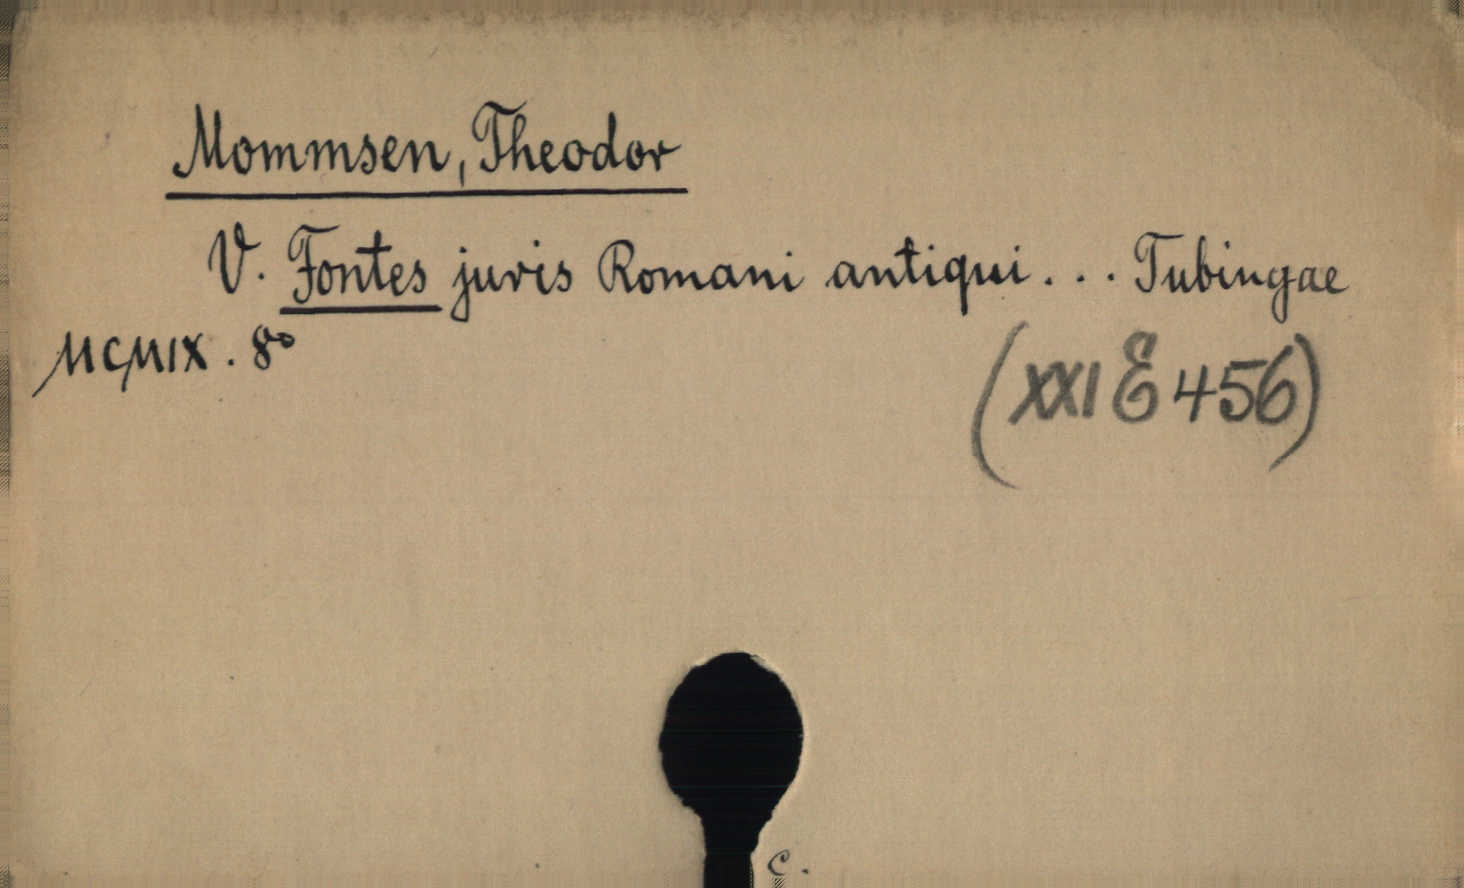 Mommsen, Theodor
V. Fontes juris Romani antiqui... Tubingae
MCMIX. 8º
(XXI E 456)
c.